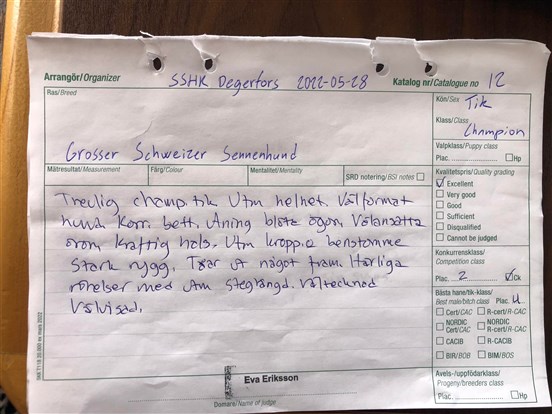 Arrangör/Organizer SSHK Degerfors 2022-05-28 Katalog nr/Catalogue no 12
Ras/Breed
Grosser Schweizer Sennenhund
Kön/Sex Tik
Klass/Class
Champion
Valpklass/Puppy class
Plac. Hp
Mätresultat/Measurement Färg/Colour Mentalitet/Mentality SRD notering/BSI notes
Kvalitetspris/Quality grading
Excellent
Very good
Good
Sufficient
Disqualified
Cannot be judged
Trevlig champ.tik Utm helhet. Välformat
huvud Korr. bett. Aning blota ögon Välansatta
öron kraftig hals. Utm kropp o benstomme
Stark rygg. Tar ut något fram. Härliga
rörelser med utm steglängd. Vältecknad
Välvisad.
Konkurrensklass/
Competition class
Plac. 2 Ck
Bästa hane/tik-klass/
Best male/bitch class Plac. 4
Cert/CAC R-cert/R-CAC
NORDIC Cert/CAC NORDIC R-cert/R-CAC
CACIB R-CACIB
BIR/BOB BIM/BOS
Avels-/uppfödarklass/
Progeny/breeders class
Plac. Hp
Eva Eriksson
Domare/Name of judge